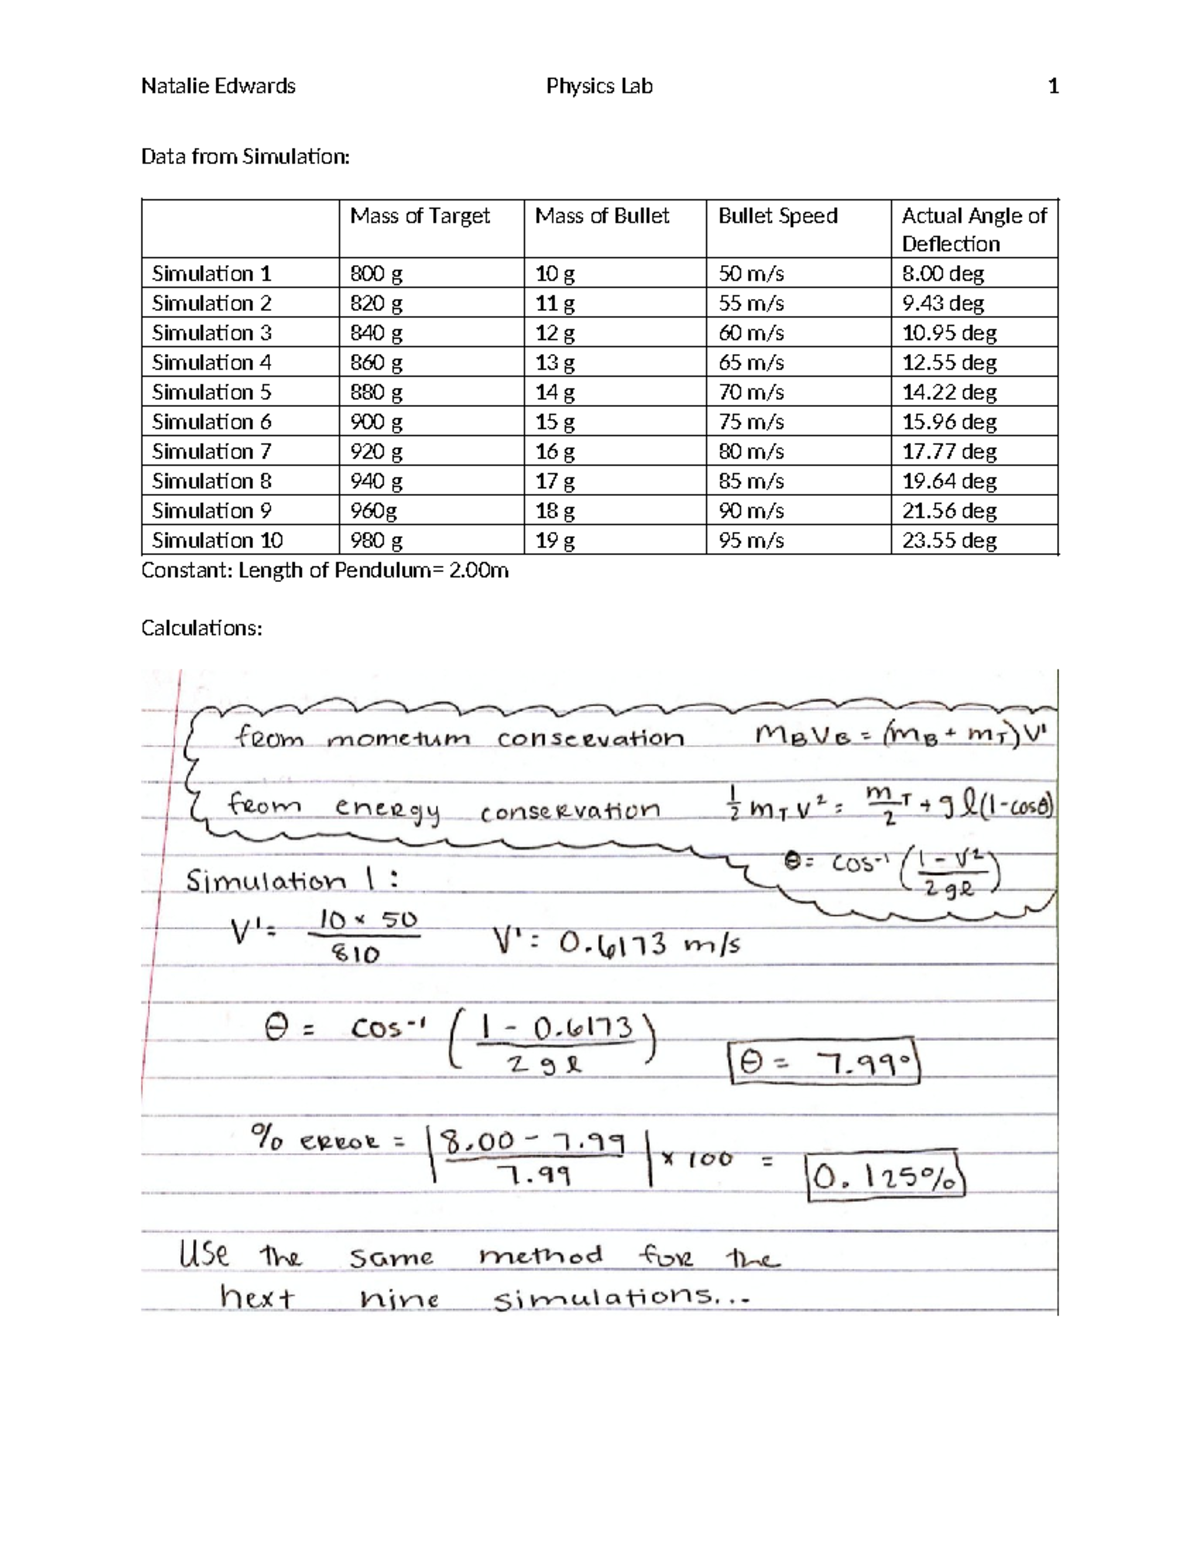 Natalie Edwards Physics Lab 1
Data from Simulation:
Mass of Target Mass of Bullet Bullet Speed Actual Angle of Deflection
Simulation 1 800 g 10 g 50 m/s 8.00 deg
Simulation 2 820 g 11 g 55 m/s 9.43 deg
Simulation 3 840 g 12 g 60 m/s 10.95 deg
Simulation 4 860 g 13 g 65 m/s 12.55 deg
Simulation 5 880 g 14 g 70 m/s 14.22 deg
Simulation 6 900 g 15 g 75 m/s 15.96 deg
Simulation 7 920 g 16 g 80 m/s 17.77 deg
Simulation 8 940 g 17 g 85 m/s 19.64 deg
Simulation 9 960g 18 g 90 m/s 21.56 deg
Simulation 10 980 g 19 g 95 m/s 23.55 deg
Constant: Length of Pendulum= 2.00m
Calculations:
from mometum conservation m_B v_B = (m_B + m_T) v'
from energy conservation 1/2 m_T v² = m_T/2 + g l(1-cosθ)
θ = cos⁻¹ (1 - v² / 2gl)
Simulation 1:
V' = 10 × 50 / 810 V' = 0.6173 m/s
θ = cos⁻¹ (1 - 0.6173 / 2gl) θ = 7.99°
% error = |8.00 - 7.99 / 7.99| × 100 = 0.125%
Use the same method for the
next nine simulations...